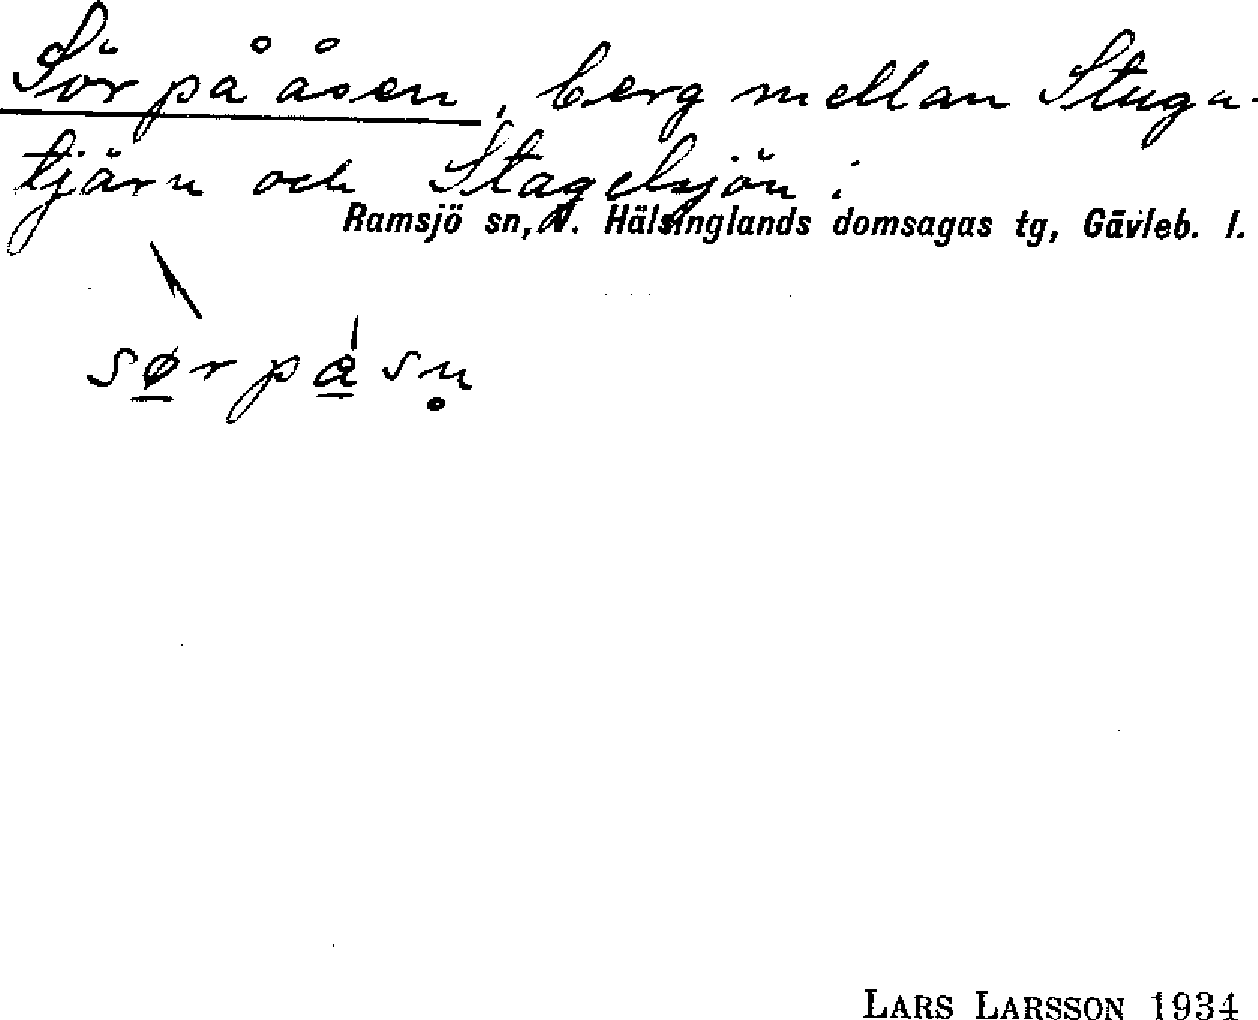 Sör på åsen, berg mellan Stugu-
tjärn och Stagelsjön i
Ramsjö sn, V. Hälsinglands domsagas tg, Gävleb. l.
sørpåsn̥
LARS LARSSON 1934